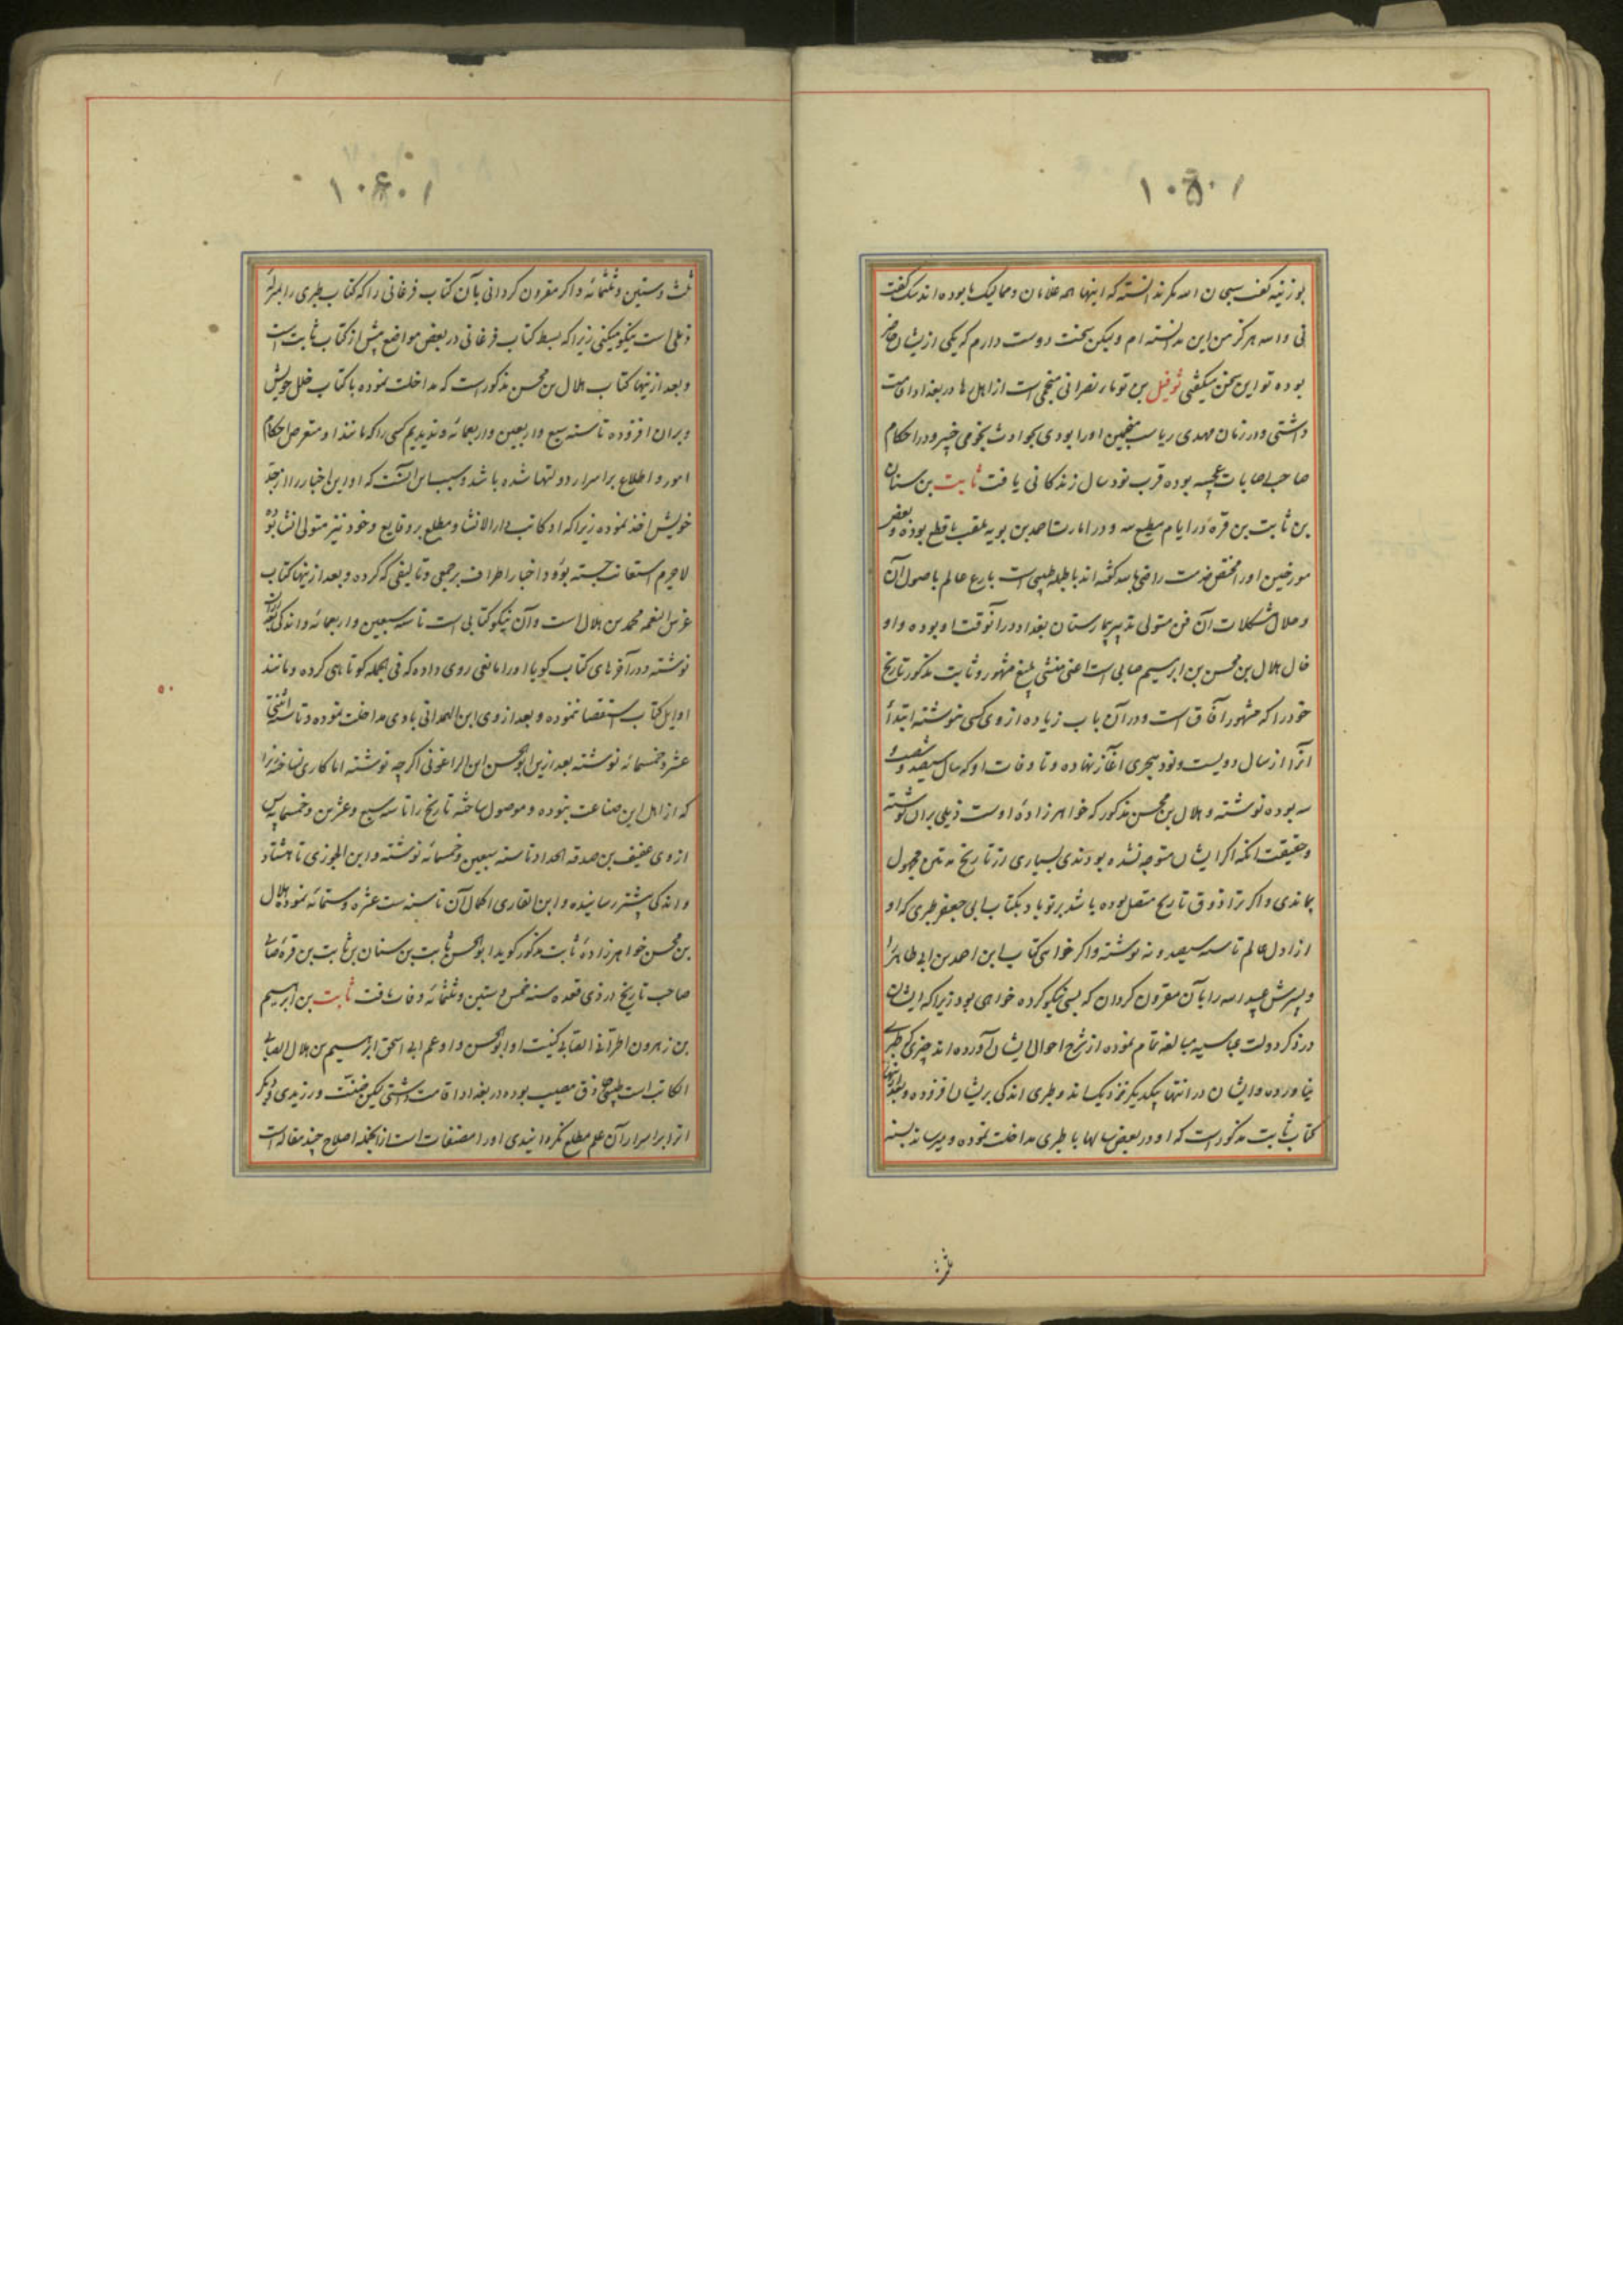 ۱۰۵۰۱
بوزنیه گفت سبحان الله مگر ندانسته که اینها همه غلامان و ممالیک ما بوده‌اند سلک گفت
نی والله هرگز من این ندانسته‌ام ولیکن سخت دوست دارم که یکی ازیشان حاضر
بوده تو این سخن میگفتی ثوفیل بن توما نصرانی منجمی است از اهل رها در بغداد اقامت
داشتی و در زمان مهدی ریاست منجمین او را بودی بحوادث نجومی خبیر و در احکام
صاحب اصابات عجیبه بوده قرب نود سال زندکانی یافت ثابت بن سنان
بن ثابت بن قره در ایام مطیع لله و در امارت احمد بن بویه ملقب باقطع بوده و بعضی
مورخین او را مختص خدمت راضی بالله گفته‌اند بالجمله طبیبی است بارع عالم باصول آن
و حلال مشکلات آن فن متولی تدبیر بیمارستان بغداد در آنوقت او بوده و او
خال هلال بن محسن بن ابرهیم صابی است اعنی منشی بلیغ مشهور و ثابت مذکور تاریخ
خود را که مشهور آفاق است و در آن باب زیاده از وی کسی ننوشته ابتدأ
آنرا از سال دویست و نود هجری آغاز نهاده و تا وفات او که سال سیصد و شصت و
سه بوده نوشته و هلال بن محسن مذکور که خواهرزادهٔ اوست ذیلی بران نوشته
و حقیقت آنکه اگر ایشان متوجه نشده بودندی بسیاری از تاریخ مجهول
بماندی و اگر ترا ذوق تاریخ متصل بوده باشد بر تو باد بکتاب ابی جعفر طبری که او
از اول عالم تا سنه سیصد و نه نوشته و اگر خواهی کتاب ابن احمد بن ابی طاهر را
و پسرش عبید الله را بآن مقرون کردان که بسی نیکو کرده خواهی بود زیرا که ایشان
در ذکر دولت عباسیه مبالغه تمام نموده از شرح احوال ایشان آورده‌اند چیزی که طبری
نیاورده و ایشان در انتها بیکدیگر نزدیک‌اند و طبری اندکی بریشان افزوده و بعد ازینها
کتاب ثابت مذکور است که او در بعض سالها با طبری مداخلت نموده و میرساند بسنه
ثلاث
۱۰۶۰۱
ثلث و ستین و ثلثمائه و اگر مقرون کردانی بآن کتاب فرغانی را که کتاب طبری را بمنزلهٔ
ذیلی است نیکو میکنی زیرا که بسط کتاب فرغانی در بعض مواضع بیش از کتاب ثابت است
و بعد ازینها کتاب هلال بن محسن مذکور است که مداخلت نموده با کتاب خال خویش
و بران افزوده تا سنه سبع و اربعین و اربعمائه و ندیدیم کسی را که مانند او متعرض احکام
امور و اطلاع بر اسرار دولتها شده باشد و سبب اس آنست که او این اخبار را از جد
خویش اخذ نموده زیرا که او کاتب دار الانشا و مطلع بر وقایع و خود نیز متولی انشا بود
لاجرم استعانت جسته بود و اخبار اطراف بر جمعی و تالیفی که کرده و بعد ازینها کتاب
غرس النعمه محمد بن هلال است و آن نیکو کتابی است تا سنه سبعین و اربعمائه و اندکی
نوشته و در آخرهای کتاب گویا او را مانعی روی داده که فی الجمله کوتاهی کرده و مانند
اوایل کتاب استقصا ننموده و بعد از وی ابن الهمدانی با وی مداخلت نموده و تا سنه اثنتی
عشر و خمسمائه نوشته بعد ازین ابو الحسن ابن الراغونی اگر چه نوشته اما کاری نساخته زیرا
که از اهل این صناعت نبوده و موصول ساخته تاریخ را تا سنه سبع و عشرین و خمسمایه پس
از وی عفیف بن صدقه الحداد تا سنه سبعین و خمسمائه نوشته و ابن الجوزی تا هشتاد
و اندکی پیشتر رسانیده و ابن القاری اکمال آن تا سنه ست عشره و ستمائه نموده هلال
بن محسن خواهرزادهٔ ثابت مذکور گوید ابو الحسن ثابت بن سنان بن ثابت بن قرهٔ صابی
صاحب تاریخ در ذی قعده سنه خمس و ستین و ثلثمائه وفات یافت ثابت بن ابرهیم
بن زهرون الحرانی الصابی کنیت او ابو الحسن و او عم ابی اسحق ابرهیم بن هلال الصابی
الکاتب است طبیبی حاذق مصیب بوده در بغداد اقامت داشتی لیکن ضنت ورزیدی و دیگر
انرا بر اسرار آن علم مطلع نگردانیدی او را مصنفات است از انجمله اصلاح چند مقاله است